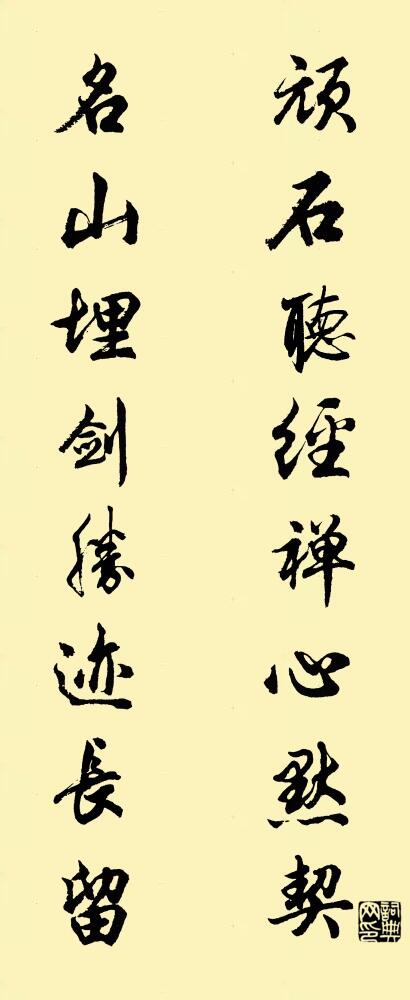 顽石聽經禅心默契
名山埋剑勝迹長留
詞典网印